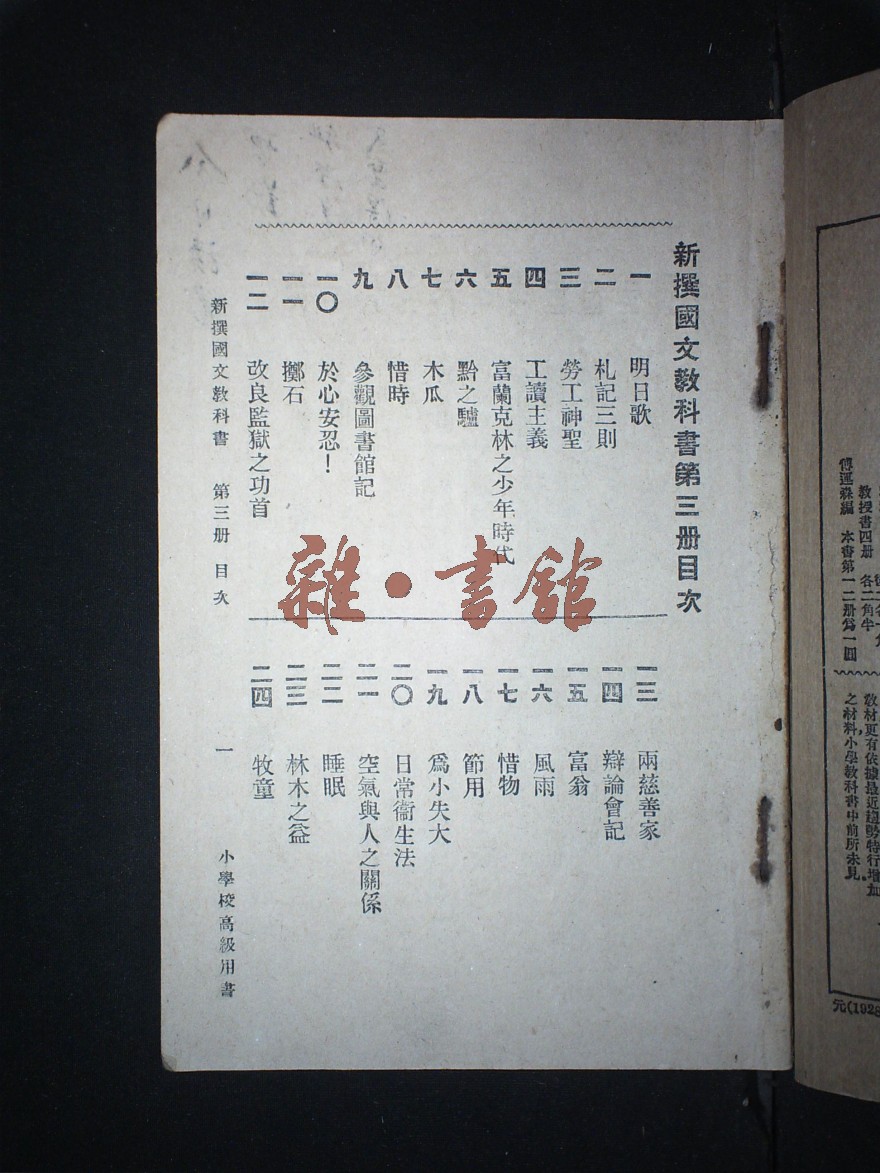 新撰國文教科書第三册目次
一 明日歌
二 札記三則
三 勞工神聖
四 工讀主義
五 富蘭克林之少年時代
六 黔之驢
七 木瓜
八 惜時
九 參觀圖書館記
一〇 於心安忍！
一一 擲石
一二 改良監獄之功首
一三 兩慈善家
一四 辯論會記
一五 富翁
一六 風雨
一七 惜物
一八 節用
一九 爲小失大
二〇 日常衞生法
二一 空氣與人之關係
二二 睡眠
二三 林木之益
二四 牧童
新撰國文教科書 第三册 目次 一 小學校高級用書
雜·書館
教授書四册 各二角半
傅運森編 本書第一二册爲一圓
教材更有依據最近趨勢特行增加
之材料小學教科書中前所未見
元(1928